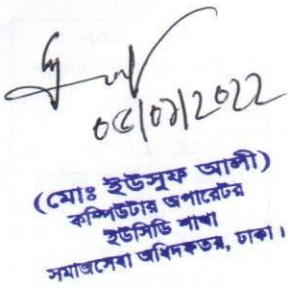 ০৫/০৬/2022
(মোঃ ইউসুফ আলী)
কম্পিউটার অপারেটর
ইউসিডি শাখা
সমাজসেবা অধিদফতর, ঢাকা।